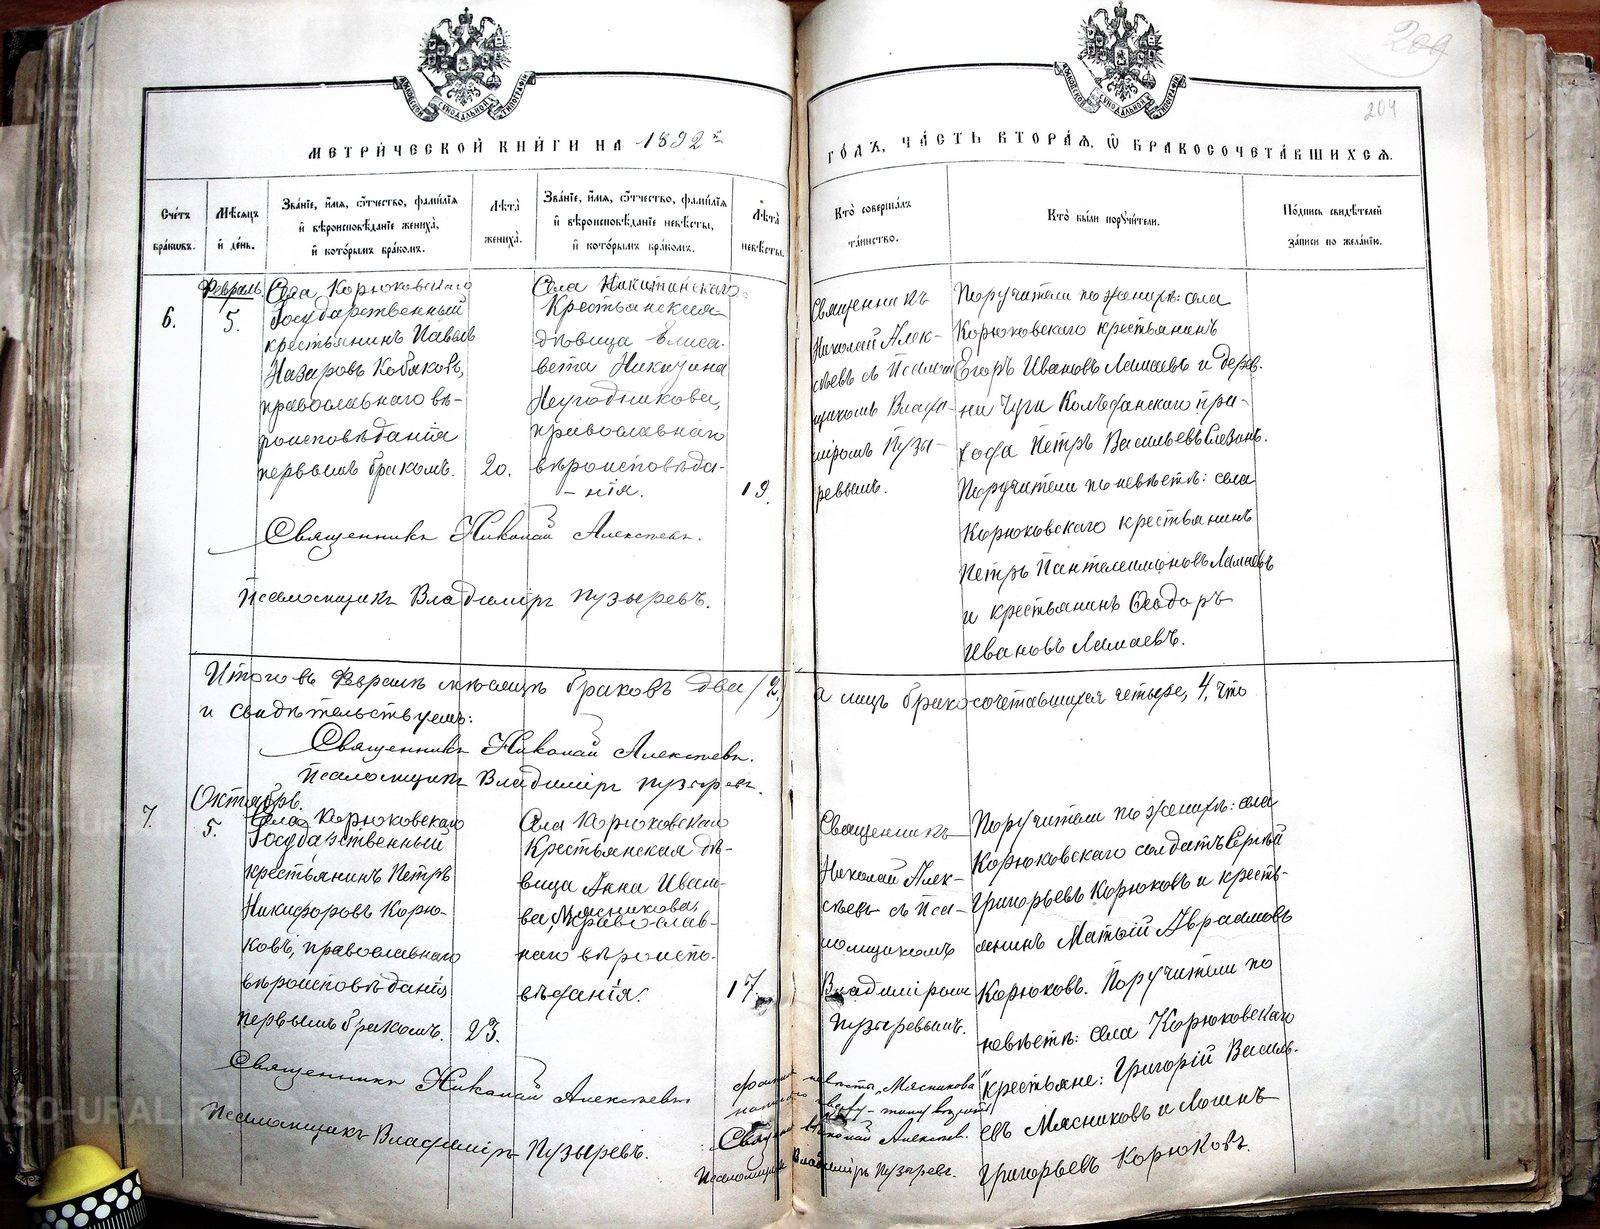 209
204
МЕТРИЧЕСКОЙ КНИГИ НА 1892 й
ГОДЪ, ЧАСТЬ ВТОРАЯ, Ѿ БРАКОСОЧЕТАВШИХСЯ.
Счетъ браковъ.
Мѣсяцъ и день.
Званіе, имя, ѿтчество, фамилія и вѣроисповѣданіе жениха, и которымъ бракомъ.
Лѣта жениха.
Званіе, имя, ѿтчество, фамилія и вѣроисповѣданіе невѣсты, и которымъ бракомъ.
Лѣта невѣсты.
Кто совершалъ таинство.
Кто были поручители.
Подпись свидѣтелей записи по желанію.
6.
Февраль
5.
Села Корюковскаго
Государственный
крестьянинъ Павелъ
Назаровъ Кобяковъ,
православнаго вѣ-
роисповѣданія
первымъ бракомъ.
20.
Села Никитинскаго
Крестьянская
дѣвица Елиса-
вета Никизина
Неугодникова,
православнаго
вѣроисповѣда-
-нія.
19.
Священникъ
Николай Алек-
сѣевъ съ Псалом
щикомъ Влади-
міромъ Пузы-
ревымъ.
Поручители по женихѣ: села
Корюковскаго крестьянинъ
Егоръ Ивановъ Ламаевъ и дерев.
ни Чуги Колѣданскаго при-
хода Петръ Васильевъ
Поручители по невѣстѣ: села
Корюковскаго крестьянинъ
Петръ Пантелеимоновъ Ламаевъ
и крестьянинъ Ѳеодоръ
Ивановъ Ламаевъ.
Священникъ Николай Алексѣевъ.
Псаломщикъ Владиміръ Пузыревъ.
Итого въ Февралѣ мѣсяцѣ браковъ два (2) а лицъ бракосочетавшихся четыре, 4, что
и свидѣтельствуемъ:
Священникъ Николай Алексѣевъ.
Псаломщикъ Владиміръ Пузыревъ.
7.
Октябрь.
5.
Села Корюковскаго
Государственный
крестьянинъ Петръ
Никифоровъ Корю-
ковъ, православнаго
вѣроисповѣданія
первымъ бракомъ.
23.
Села Корюковскаго
Крестьянская дѣ-
вица Анна Ивано-
ва, Мясникова,
православ-
наго вѣроиспо-
вѣданія.
17.
Священникъ
Николай Алек-
сѣевъ съ Пса-
ломщикомъ
Владиміромъ
Пузыревымъ.
Поручители по женихѣ: села
Корюковскаго солдатъ Сергѣй
Григорьевъ Корюковъ и кресть-
янинъ Матѳій Авраамовъ
Корюковъ. Поручители по
невѣстѣ: села Корюковскаго
крестьяне: Григорій Василь-
евъ Мясниковъ и Логинъ
Григорьевъ Корюковъ.
Священникъ Николай Алексѣевъ
Псаломщикъ Владиміръ Пузыревъ.
невѣсты „Мясникова"
Священникъ Николай Алексѣев.
Псаломщикъ Владиміръ Пузыревъ.